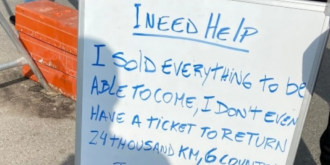 I NEED HELP
I SOLD EVERYTHING TO be
ABLE TO COME, I DON'T EVEN
HAVE A TICKET TO RETURN
24 THOUSAND KM, 6